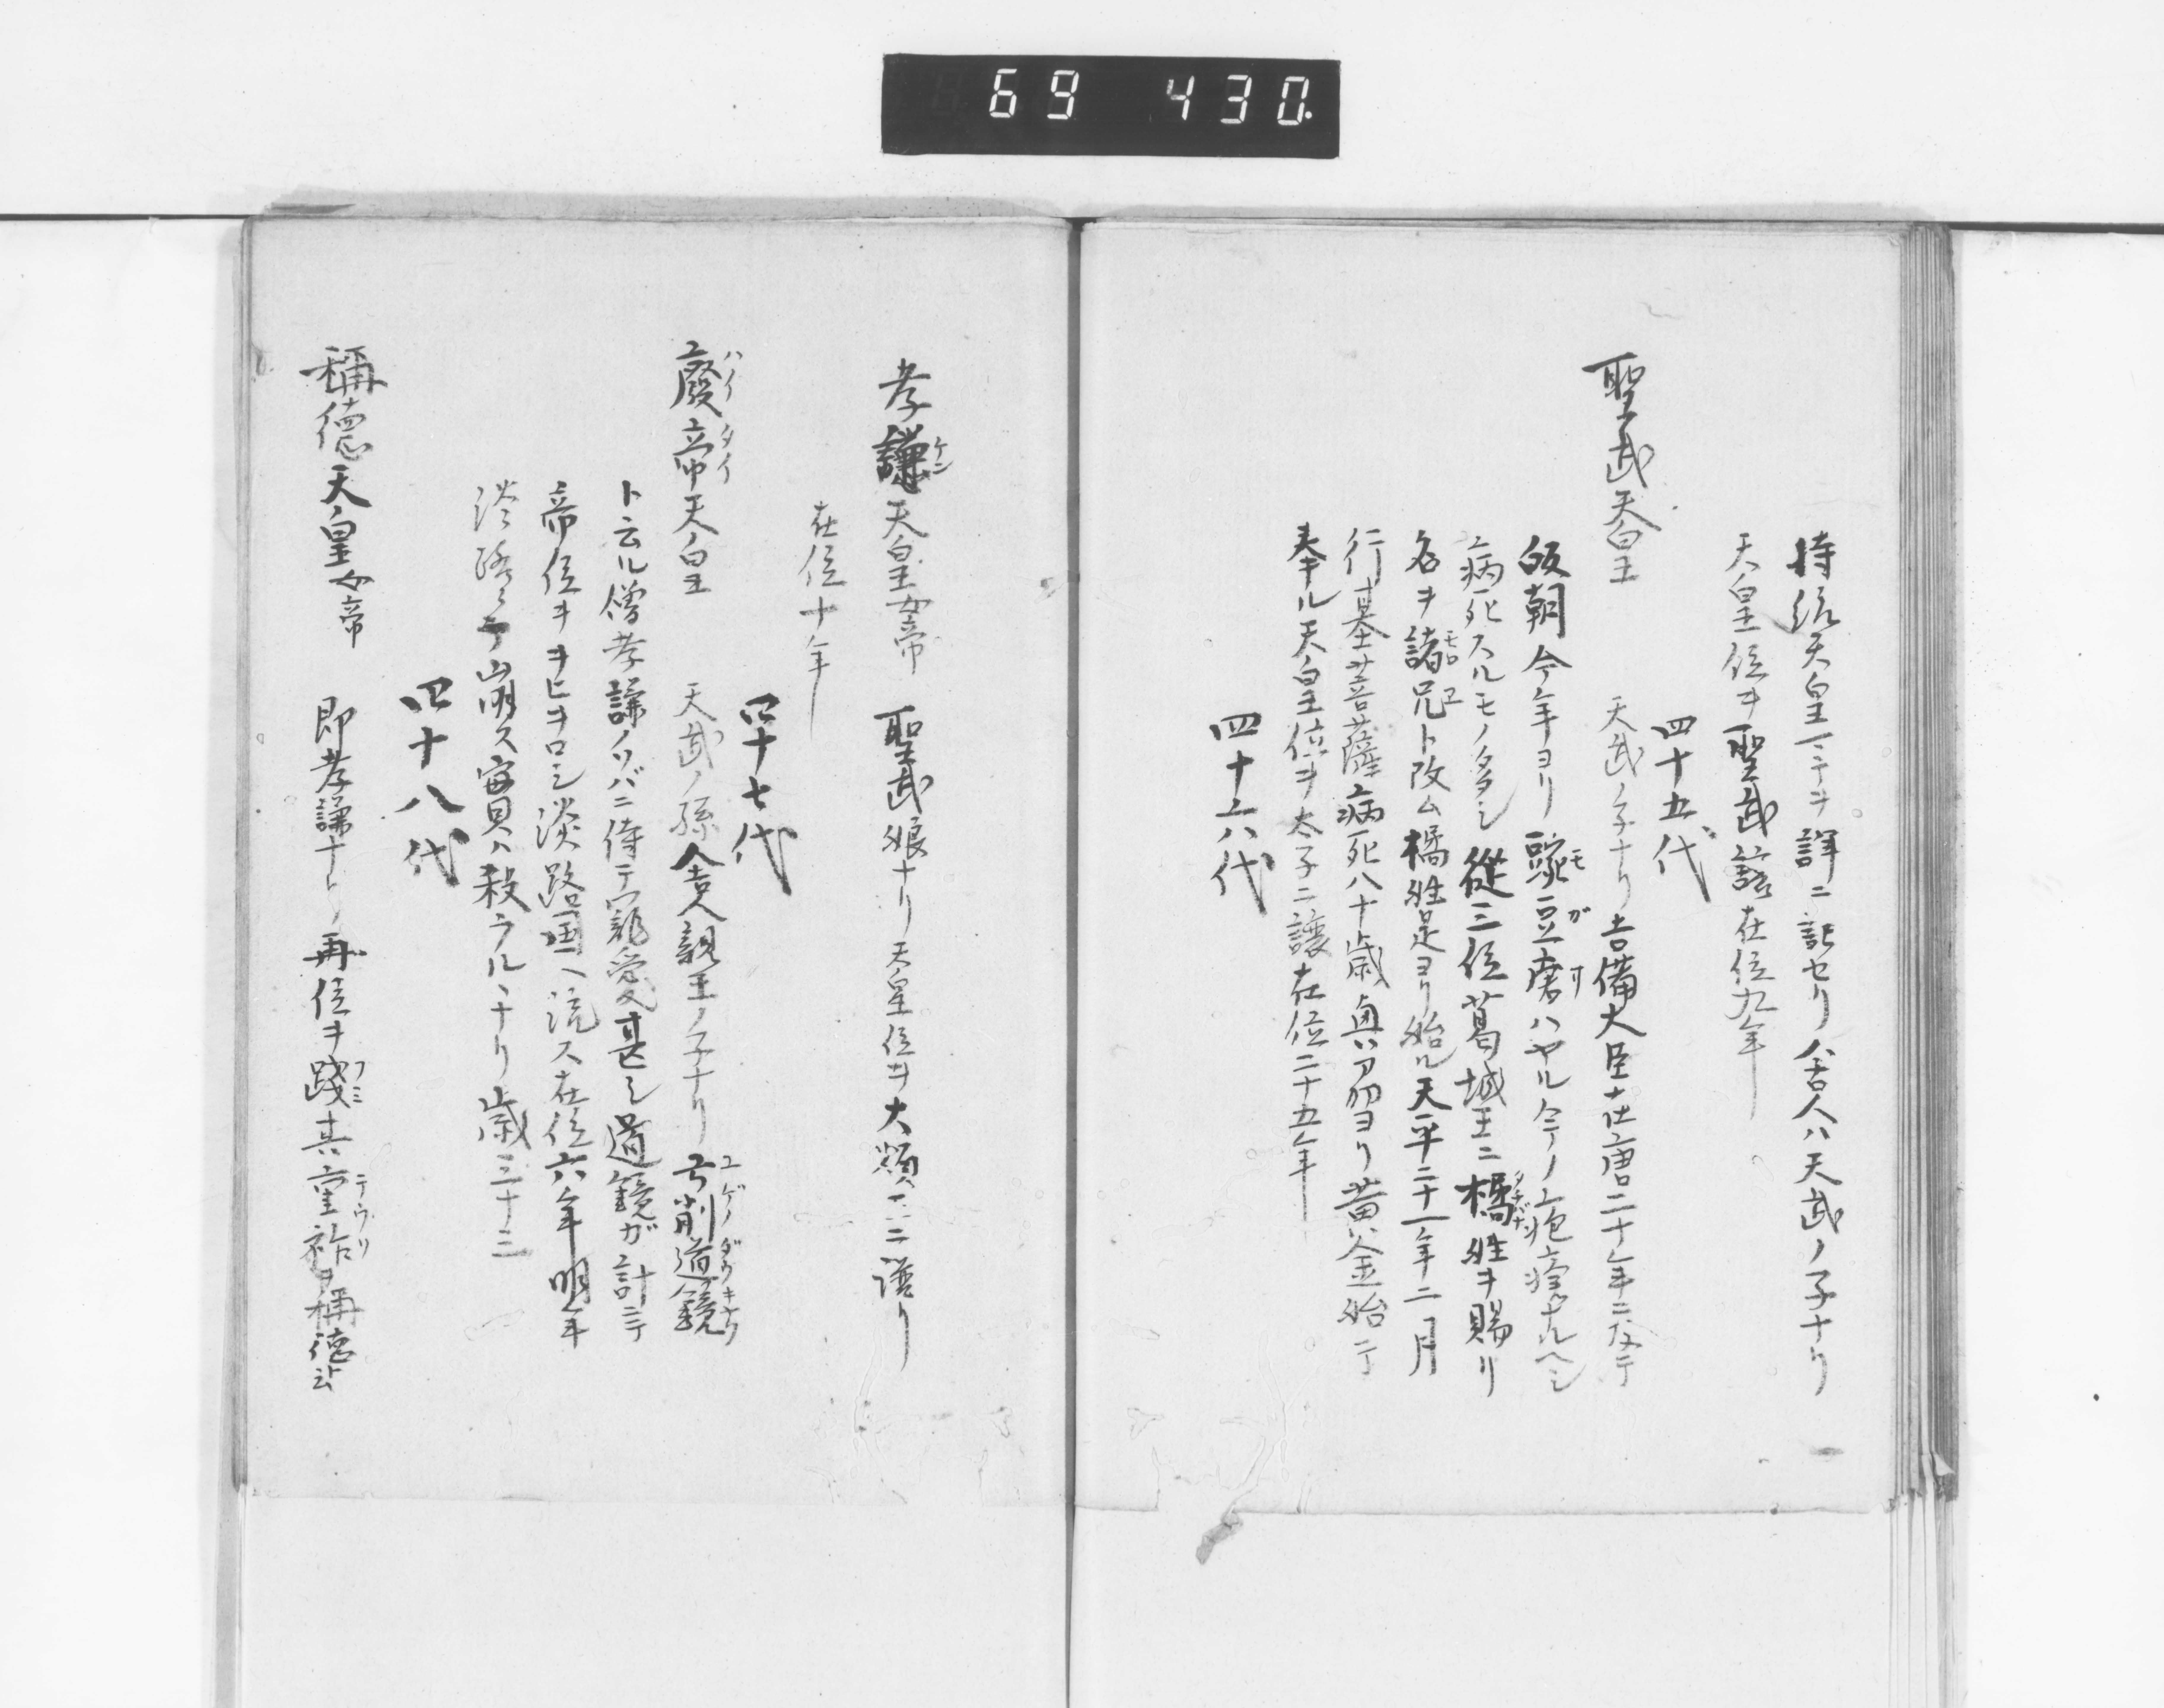 69 430.
持統天皇マテヲ詳ニ記セリ舎人ハ天武ノ子ナリ
天皇位ヲ聖武譲在位九年
四十五代
聖武天皇 天武ノ子ナリ吉備大臣在唐二十年ニ及テ
皈朝今年ヨリ豌豆瘡ハヤル今ノ疱瘡ナルヘシ
モガサ
病死スルモノ多シ從三位葛城王ニ橘姓ヲ賜リ
タチバナ
名ヲ諸兄ト改ム橘姓是ヨリ始ル天平二十一年二月
モロヱ
行基菩薩病死八十歳奥刕ヨリ黄金始テ
奉ル天皇位ヲ太子ニ譲在位二十五年
四十六代
孝謙天皇女帝 聖武娘ナリ天皇位ヲ大炊ニ譲リ
ケン
在位十年
四十七代
廢帝天皇 天武ノ孫舎人親王ノ子ナリ弓削道鏡
ハイタイ ユゲノダウキヤウ
ト云ル僧孝謙ノソバニ侍テ寵愛甚シ道鏡ガ計ニテ
帝位ヲヲヒヲロシ淡路国ヘ流ス在位六年明年
淡路ニテ崩ス實ハ殺ラルヽナリ歳三十三
四十八代
稱徳天皇女帝 即孝謙ナリ再位ヲ踐其重祚ヲ稱徳云
フミ